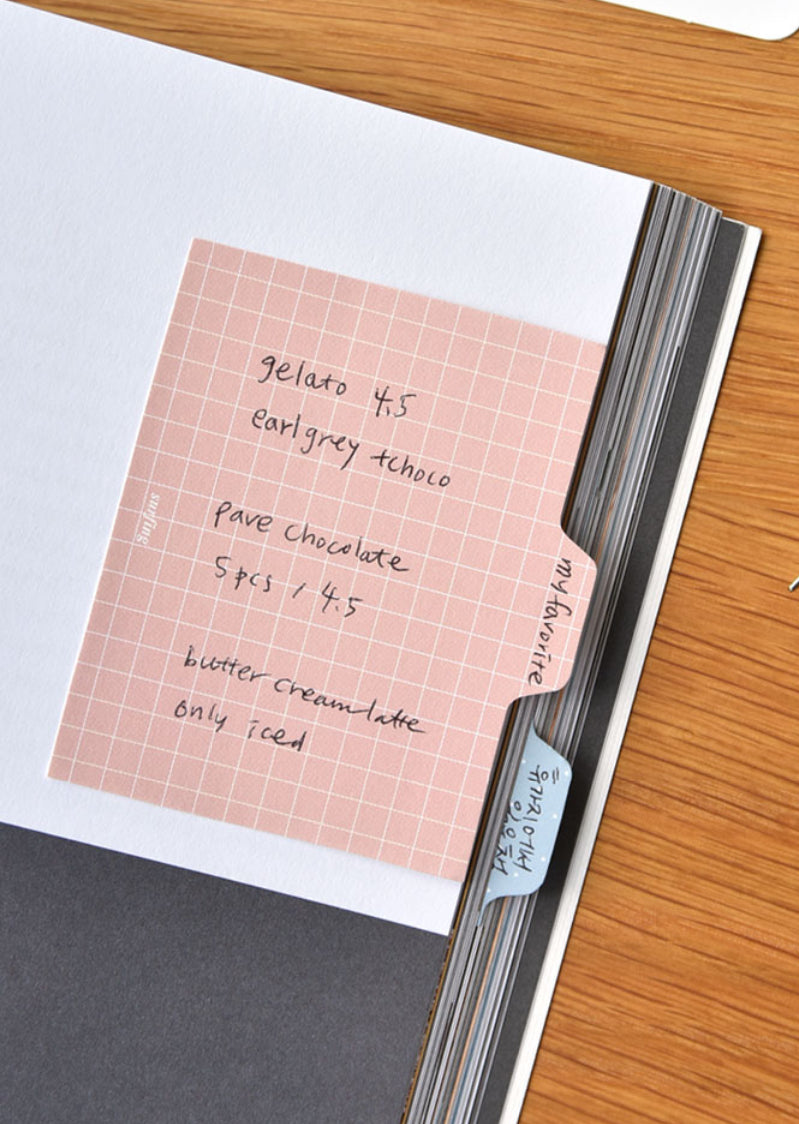 gelato 4.5
earl grey tchoco
pave chocolate
5pcs / 4.5
butter cream latte
only iced
my favorite
휴가지에서